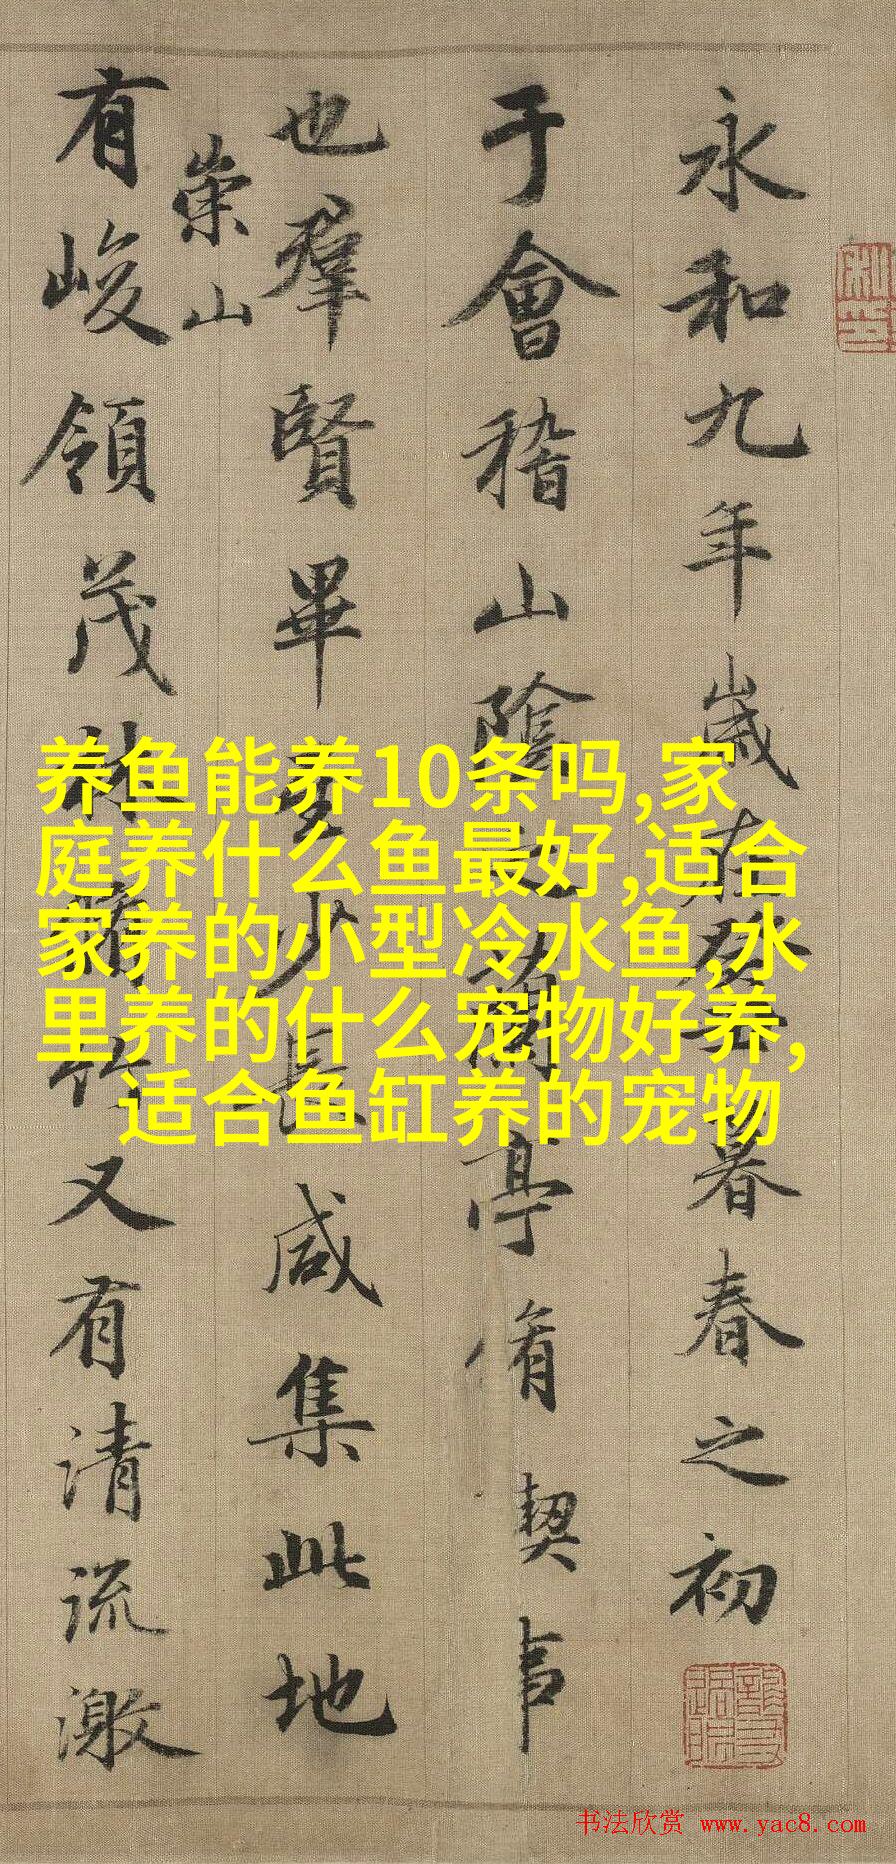 永和九年歲在癸丑暮春之初
于會稽山陰之蘭亭脩契事
也羣賢畢至少長咸集此地
崇山
有峻領茂林脩竹又有清流激
养鱼能养10条吗,家
庭养什么鱼最好,适合
家养的小型冷水鱼,水
里养的什么宠物好养,
适合鱼缸养的宠物
书法欣赏 www.yac8.com